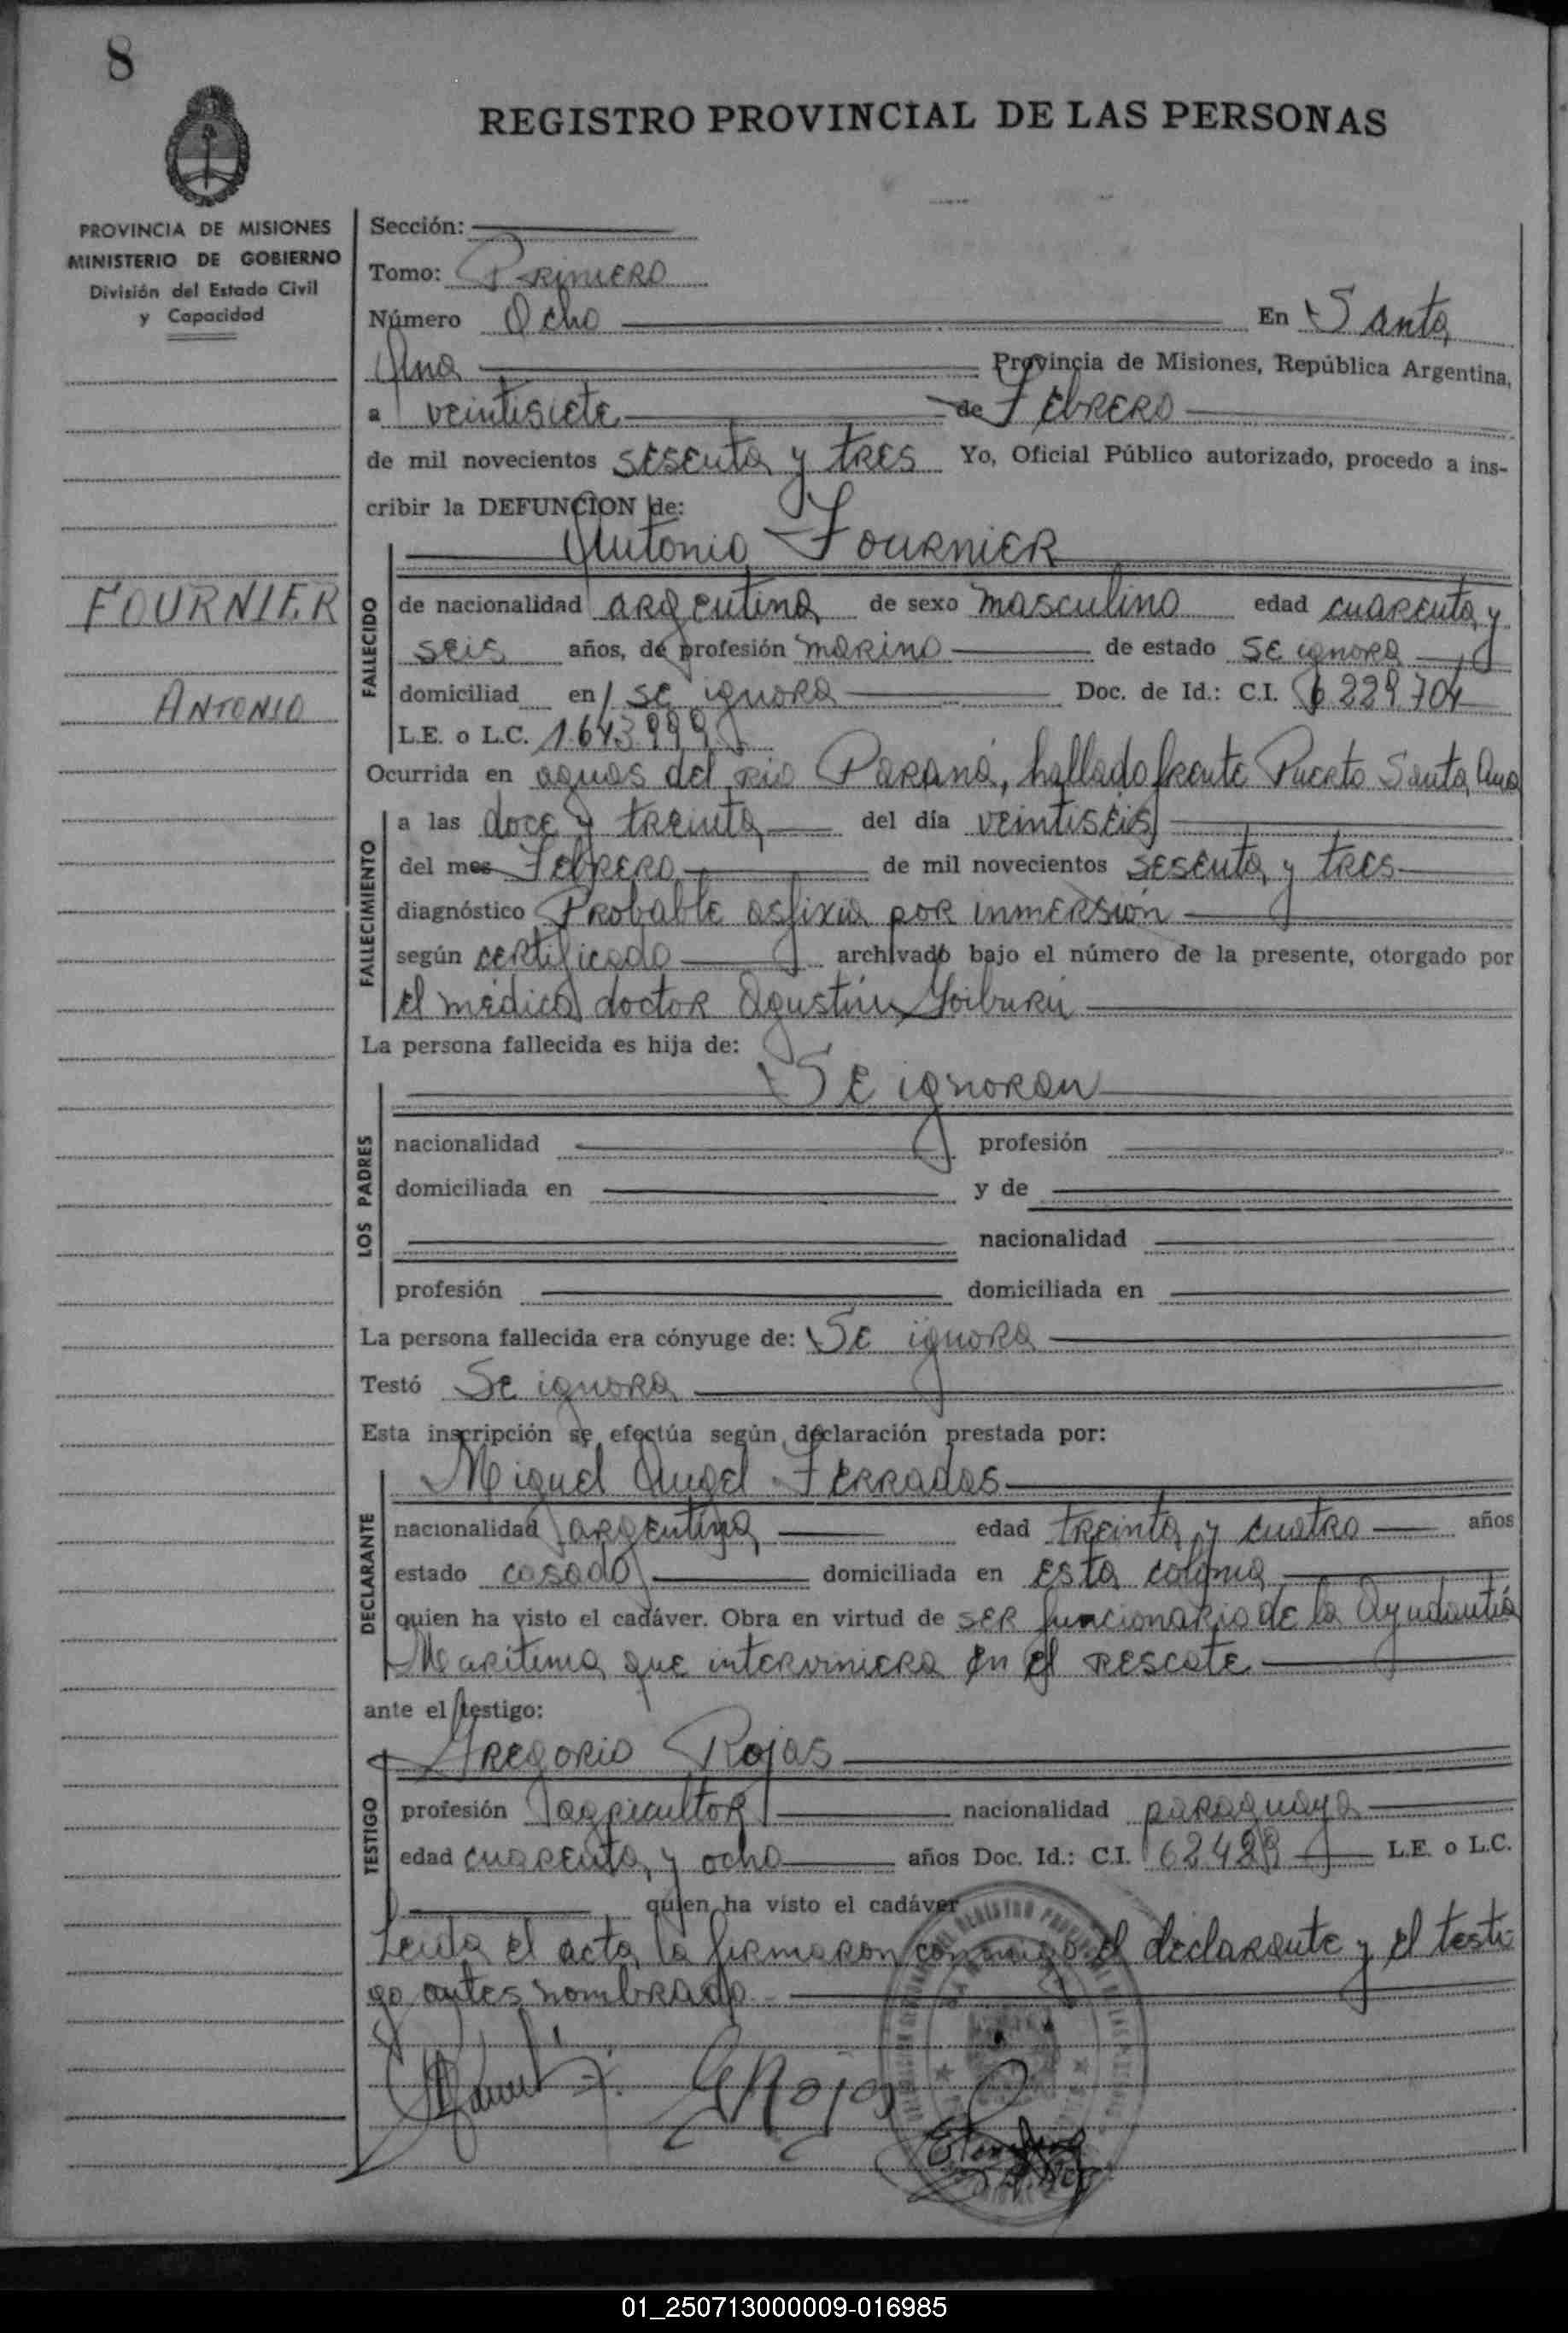 8
REGISTRO PROVINCIAL DE LAS PERSONAS
PROVINCIA DE MISIONES
MINISTERIO DE GOBIERNO
División del Estado Civil
y Capacidad
FOURNIER
ANTONIO
Sección:
Tomo: Primero
Número Ocho En Santa
Ana Provincia de Misiones, República Argentina,
a veintisiete de Febrero
de mil novecientos sesenta y tres Yo, Oficial Público autorizado, procedo a ins-
cribir la DEFUNCION de:
Antonio Fournier
FALLECIDO
de nacionalidad argentina de sexo masculino edad cuarenta y
seis años, de profesión marino de estado se ignora
domiciliad en se ignora Doc. de Id.: C.I. 6 229.704
L.E. o L.C. 1.643.999
Ocurrida en aguas del rio Paraná, hallado frente Puerto Santa Ana
FALLECIMIENTO
a las doce y treinta del día veintiseis
del mes Febrero de mil novecientos sesenta y tres
diagnóstico Probable asfixia por inmersión
según certificado archivado bajo el número de la presente, otorgado por
el médico doctor Agustín Goiburú
La persona fallecida es hija de:
Se ignoran
LOS PADRES
nacionalidad profesión
domiciliada en y de
nacionalidad
profesión domiciliada en
La persona fallecida era cónyuge de: Se ignora
Testó Se ignora
Esta inscripción se efectúa según declaración prestada por:
Miguel Angel Ferradas
DECLARANTE
nacionalidad argentina edad treinta y cuatro años
estado casado domiciliada en esta colonia
quien ha visto el cadáver. Obra en virtud de ser funcionario de la Ayudantía
Marítima que interviniera en el rescate
ante el testigo:
Gregorio Rojas
TESTIGO
profesión agricultor nacionalidad paraguaya
edad cuarenta y ocho años Doc. Id.: C.I. 62428 L.E. o L.C.
quien ha visto el cadáver
Leida el acta, la firmaron conmigo el declarante y el testi-
go antes nombrado
GRojas
01_250713000009-016985